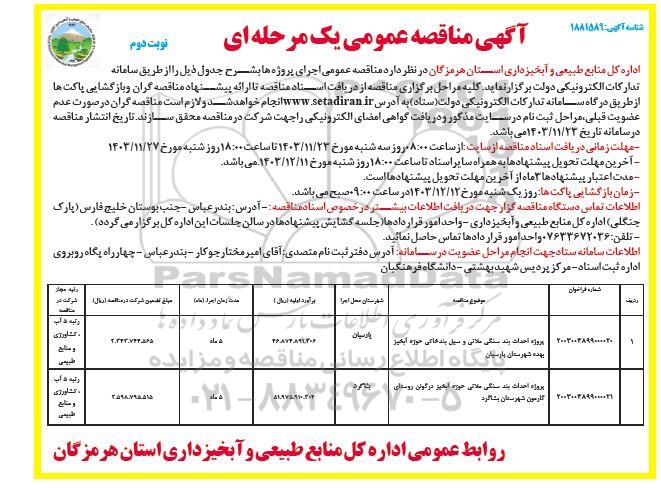 شناسه آگهی: ۱۸۸۱۵۸۶
آگهی مناقصه عمومی یک مرحله ای
نوبت دوم
اداره کل منابع طبیعی و آبخیزداری استان هرمزگان در نظر دارد مناقصه عمومی اجرای پروژه ها بشرح جدول ذیل را از طریق سامانه
تدارکات الکترونیکی دولت برگزار نماید. کلیه مراحل برگزاری مناقصه از دریافت اسناد مناقصه تا ارائه پیشنهاد مناقصه گران و بازگشایی پاکت ها
از طریق درگاه سامانه تدارکات الکترونیکی دولت(ستاد) به آدرس www.setadiran.ir انجام خواهد شد و لازم است مناقصه گران در صورت عدم
عضویت قبلی، مراحل ثبت نام در سایت مذکور و دریافت گواهی امضای الکترونیکی را جهت شرکت در مناقصه محقق سازند. تاریخ انتشار مناقصه
در سامانه تاریخ ۱۴۰۳/۱۱/۲۳ می باشد.
-مهلت زمانی دریافت اسناد مناقصه از سایت: از ساعت ۰۸:۰۰ روز سه شنبه مورخ ۱۴۰۳/۱۱/۲۳ تا ساعت ۱۸:۰۰ روز شنبه مورخ ۱۴۰۳/۱۱/۲۷
- آخرین مهلت تحویل پیشنهادها به همراه سایر اسناد تا ساعت ۱۸:۰۰ روز شنبه مورخ ۱۴۰۳/۱۲/۱۱ می باشد.
-مدت اعتبار پیشنهادها ۳ ماه از آخرین مهلت تحویل پیشنهادها است.
-زمان بازگشایی پاکت ها: روز یک شنبه مورخ ۱۴۰۳/۱۲/۱۲ در ساعت ۰۹:۰۰ صبح می باشد.
اطلاعات تماس دستگاه مناقصه گزار جهت دریافت اطلاعات بیشتر در خصوص اسناد مناقصه: - آدرس: بندرعباس -جنب بوستان خلیج فارس (پارک
جنگلی) اداره کل منابع طبیعی و آبخیزداری -واحد امور قراردادها(جلسه گشایش پیشنهادها در سالن جلسات این اداره کل برگزار می گردد).
- تلفن: ۰۷۶۳۳۶۷۲۰۳۶ واحد امور قراردادها تماس حاصل نمائید.
اطلاعات سامانه ستاد جهت انجام مراحل عضویت در سامانه: آدرس دفتر ثبت نام متصدی: آقای امیر مختار جوکار -بندرعباس -چهارراه پگاه روبروی
اداره ثبت اسناد- مرکز پردیس شهید بهشتی -دانشگاه فرهنگیان
ردیف | شماره فراخوان | موضوع مناقصه | شهرستان محل اجرا | برآورد اولیه (ریال) | مدت زمان اجرا. (ماه) | مبلغ تضمین شرکت در مناقصه (ریال) | رتبه مجاز شرکت در مناقصه
۱ | ۲۰۰۳۰۰۳۸۹۹۰۰۰۰۲۰ | پروژه احداث بند سنگی ملاتی و سیل بند خاکی حوزه آبخیز بهده شهرستان پارسیان | پارسیان | ۴۶.۸۷۴.۸۹۱.۳۰۶ | ۵ ماه | ۲.۳۴۳.۷۴۴.۵۶۵ | رتبه ۵ آب ، کشاورزی و منابع طبیعی
۲۰۰۳۰۰۳۸۹۹۰۰۰۰۲۱ | پروژه احداث بند سنگی ملاتی حوزه آبخیز درگونن روستای گارمون شهرستان بشاگرد | بشاگرد | ۵۱.۹۷۵.۹۱۰.۳۰۴ | ۵ ماه | ۲.۵۹۸.۷۹۵.۵۱۵ | رتبه ۵ آب ، کشاورزی و منابع طبیعی
ParsNamadData
مرکز فرآوری اطلاعات پارس نماد داده ها
پایگاه اطلاع رسانی مناقصه و مزایده
۰۲۱-۸۸۳۴۹۶۷۰-۵
روابط عمومی اداره کل منابع طبیعی و آبخیزداری استان هرمزگان